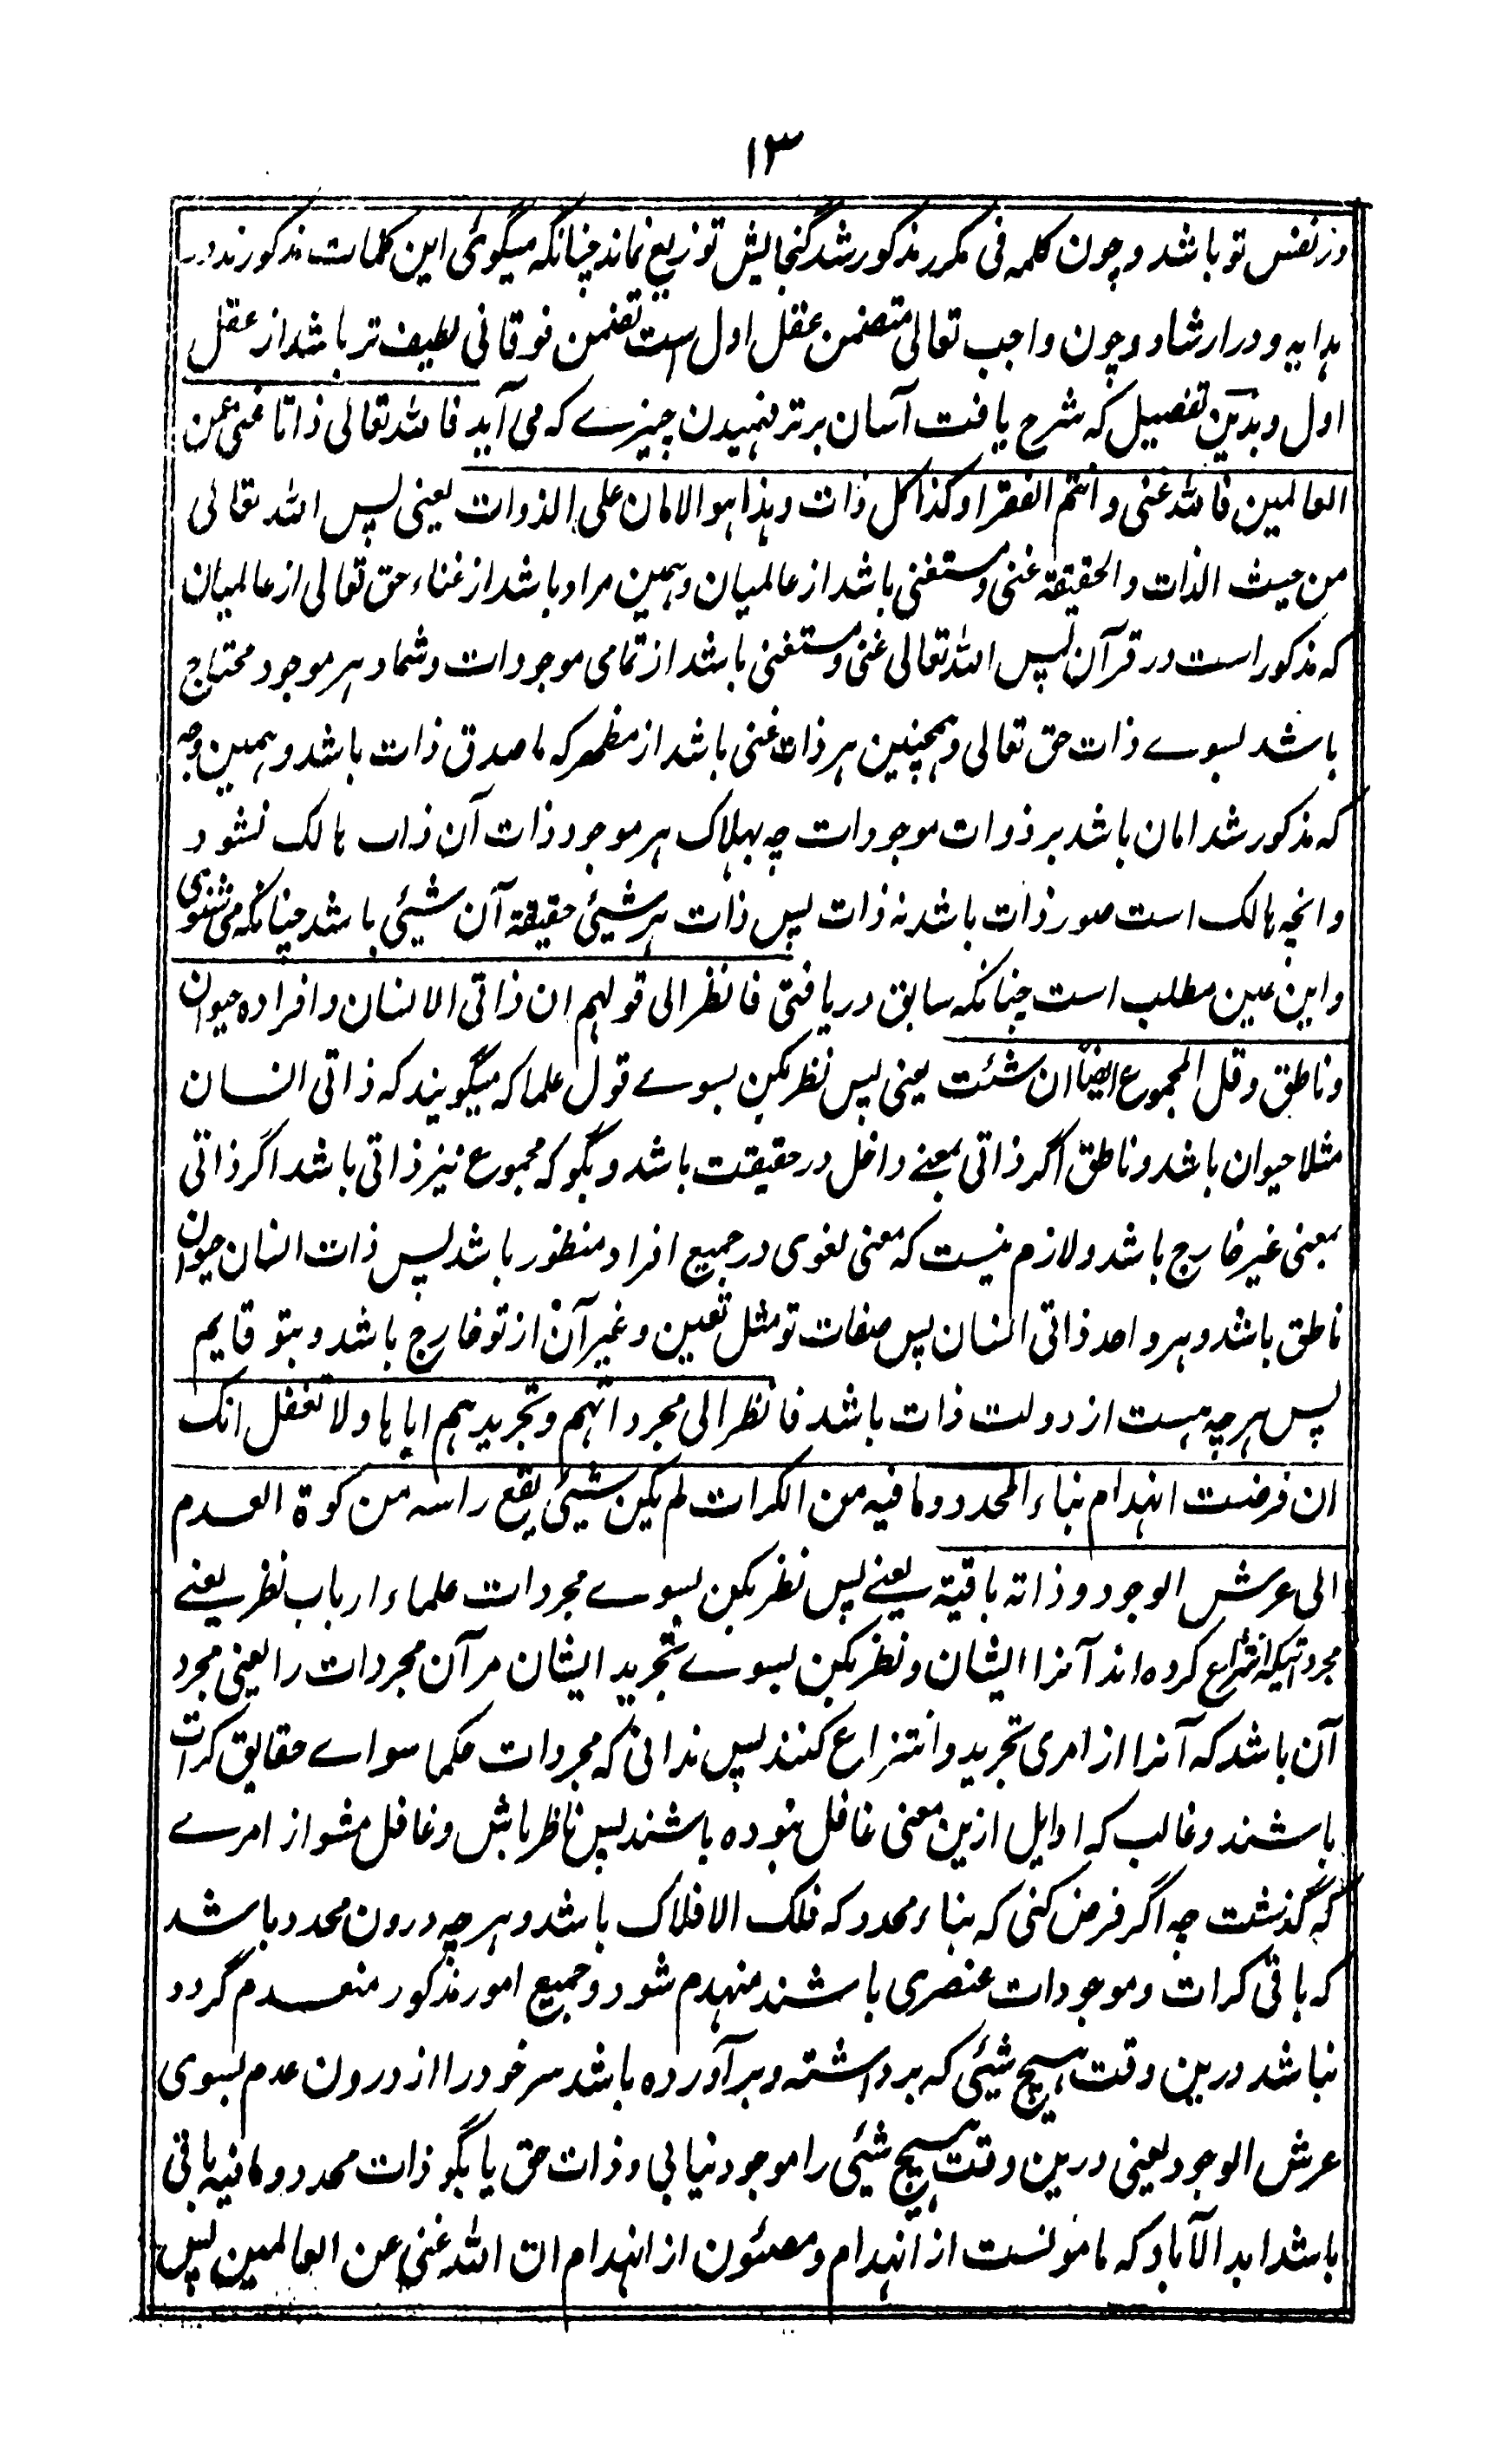 ۱۳
در نفس تو باشد و چون کلمه فی مکرر مذکور شد گنجایش توزیع نماند چنانکه میگوئی این کلمات مذکورند در
هدایه و در ارشاد و چون واجب تعالی متضمن عقل اول است تضمن فوقانی لطیف تر باشد از عقل
اول و بدین تفصیل که شرح یافت آسان بر تر فهمیدن چیزے که می آید فالله تعالی ذاتا غنی عن
العالمین فالله غنی و انتم الفقرا و کذا کل ذات و هذا هو الامان علی الذوات یعنی پس الله تعالی
من حیث الذات والحقیقة غنی و مستغنی باشد از عالمیان و همین مراد باشد از غناء حق تعالی از عالمیان
که مذکور است در قرآن پس الله تعالی غنی و مستغنی باشد از تمامی موجودات و شما و هر موجود محتاج
باشد بسوے ذات حق تعالی و همچنین هر ذات غنی باشد از مظهر که ما صدق ذات باشد و همین وجه
که مذکور شد امان باشد بر ذوات موجودات چه بهلاک هر موجود ذات آن ذات هالک نشود
و انچه هالک است صور ذات باشد نه ذات پس ذات هر شیئی حقیقة آن شیئی باشد چنانکه می شنوی
و این عین مطلب است چنانکه سابق دریافتی فانظر الی قولهم ان ذاتی الانسان و افراده حیوان
و ناطق و قل المجموع ایضا ان شئت یعنی پس نظر بکن بسوے قول علما که میگویند که ذاتی انسان
مثلا حیوان باشد و ناطق اگر ذاتی بمعنے داخل در حقیقت باشد و بگو که مجموع نیز ذاتی باشد اگر ذاتی
بمعنی غیر خارج باشد و لازم نیست که معنی لغوی در جمیع افراد منظور باشد پس ذات انسان حیوان
ناطق باشد و هر واحد ذاتی انسان پس صفات تو مثل تعین و غیر آن از تو خارج باشد و بتو قایم
پس هر چه هست از دولت ذات باشد فانظر الی مجرداتهم و تجریدهم ایاها و لا تغفل انک
ان فرضت انهدام بناء المحدد و ما فیه من الکرات لم یکن شیئی یقع راسه من کوة العدم
الی عرش الوجود و ذاته باقیة یعنے پس نظر بکن بسوے مجردات علماء ارباب نظر یعنے
مجرداتیکه انتزاع کرده اند آنرا ایشان و نظر بکن بسوے تجرید ایشان مر آن مجردات را یعنی مجرد
آن باشد که آنرا از امری تجرید و انتزاع کنند پس ندانی که مجردات حکما سواے حقایق کرات
باشند و غالب که اوایل ازین معنی غافل نبوده باشند پس ناظر باش و غافل مشو از امرے
که گذشت چه اگر فرض کنی که بناء محدد که فلک الافلاک باشد و هر چه درون محدد باشد
که باقی کرات و موجودات عنصری باشند منهدم شود و جمیع امور مذکور منعدم گردد
نباشد درین وقت هیچ شیئی که برداشته و برآورده باشد سر خود را از درون عدم بسوی
عرش الوجود یعنی درین وقت هیچ شیئی را موجود نیابی و ذات حق یا بگو ذات محدد و ما فیه باقی
باشد ابد الآباد که مامونست از انهدام و مصئون از انهدام ان الله غنی عن العالمین پس